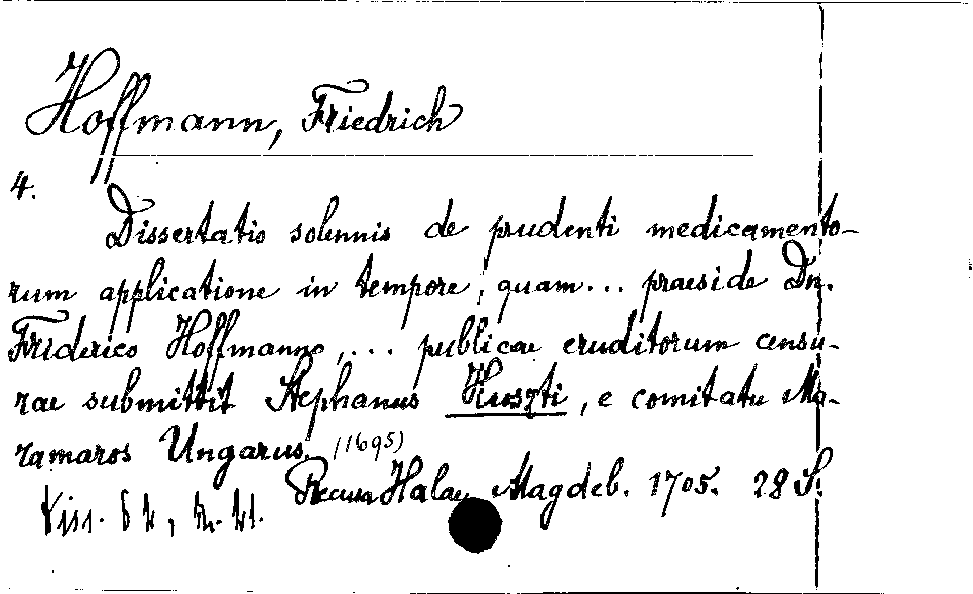 Hoffmann, Friedrich
4.
Dissertatio solennis de prudenti medicamento-
rum applicatione in tempore, quam... praeside Dn.
Friderico Hoffmanno,... publicae eruditorum censu-
rae submittit Stephanus Huszti, e comitatu Ma-
ramaros Ungarus. (1695)
Recusa Halae Magdeb. 1705. 28 S.
Diss.